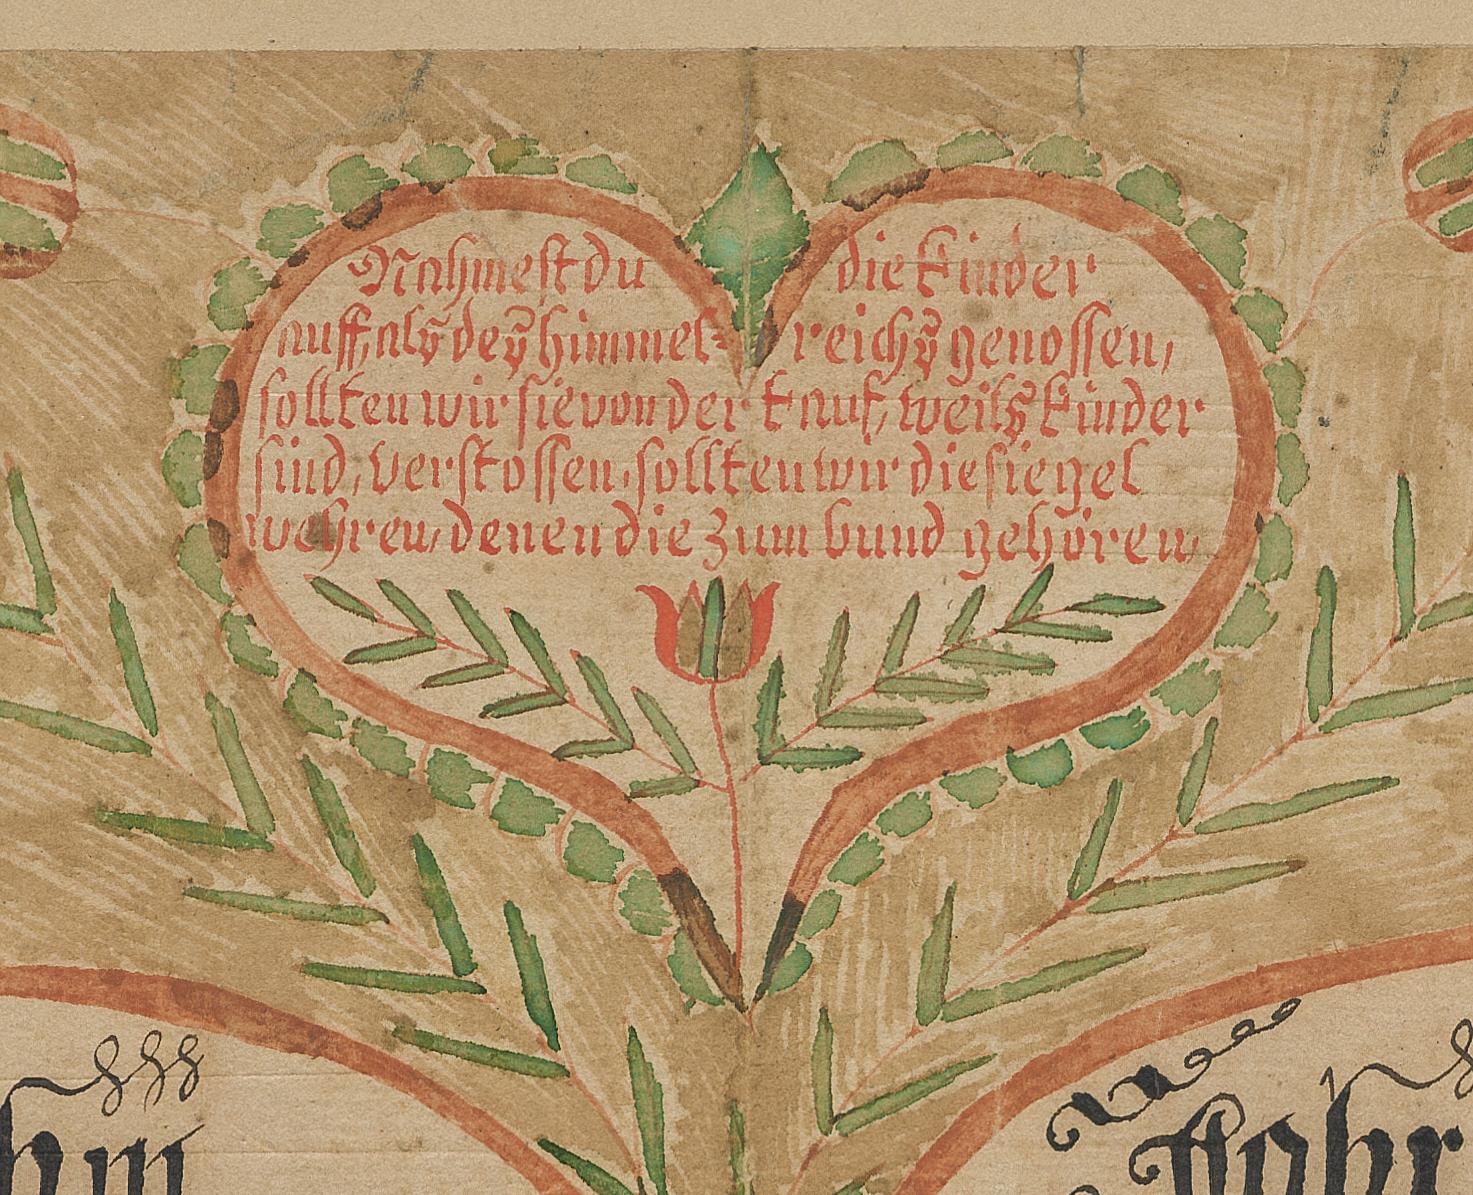 Nahmest du die Kinder
auff, als des himmel= reichs genossen,
sollten wir sie von der tauf, weils Kinder
sind, verstossen, sollten wir die siegel
wehren, denen die zum bund gehören,
hm
Johr